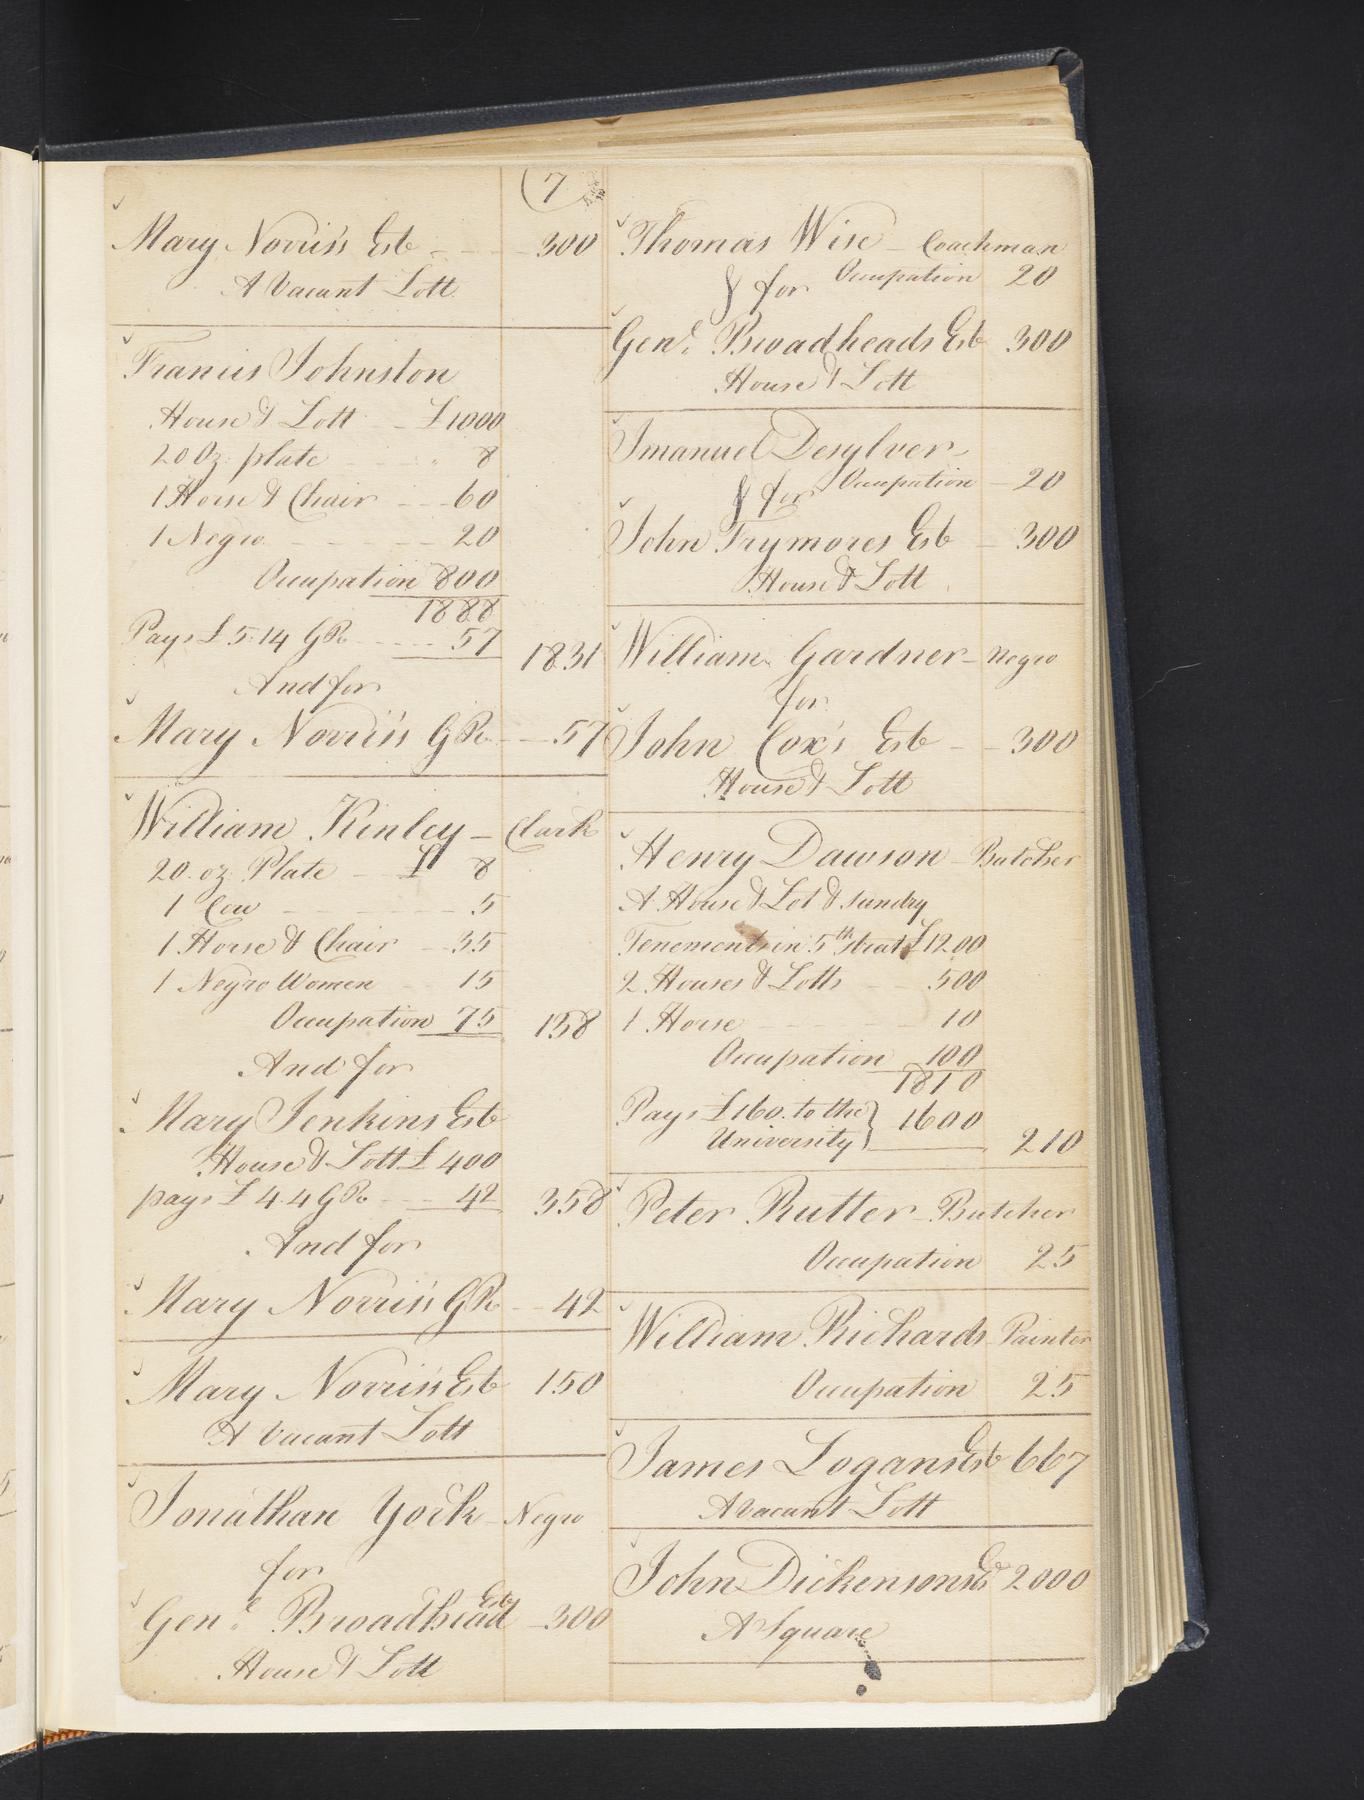 7
Mary Norris's Est - - - 300
A Vacant Lott
Francis Johnston
House & Lott - £1000
20 Oz: plate - - - 8
1 Horse & Chair - - - 60
1 Negro - - - 20
Occupation 800
1888
Pays £5.14 G R - - - 57 1831
And for
Mary Norris's G R - - - 57
William Kinley - Clark
20. oz: Plate - £ 8
1 Cow - - - 5
1 Horse & Chair - - 35
1 Negro Women - 15
Occupation 75 138
And for
Mary Jenkins Est
House & Lott £ 400
pays £ 4.4 G R - - - 42 358
And for
Mary Norris's G R - - 42
Mary Norris's Est 150
A Vacant Lott
Jonathan York - Negro
for
Genl. Broadhead Est - 300
House & Lott
Thomas Wise - Coachman
& for Occupation 20
Genl. Broadheads Est 300
House & Lott
Imanuel Desylver -
& for Occupation - 20
John Frymores Est - 300
House & Lott
William Gardner - Negro
for
John Cox's Est - - 300
House & Lott
Henry Dawson - Butcher
A House & Lot & sundry
Tenements in 5th street £1200
2 Houses & Lotts - - 500
1 Horse - - - 10
Occupation 100
1810
Pays £160. to the } 1600
University 210
Peter Rutter - Butcher
Occupation 25
William Richards - Painter
Occupation 25
James Logans Est 667
A vacant Lott
John Dickensons Est 2000
A Square